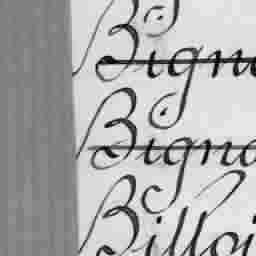 Bigno
Bigno
Billoi